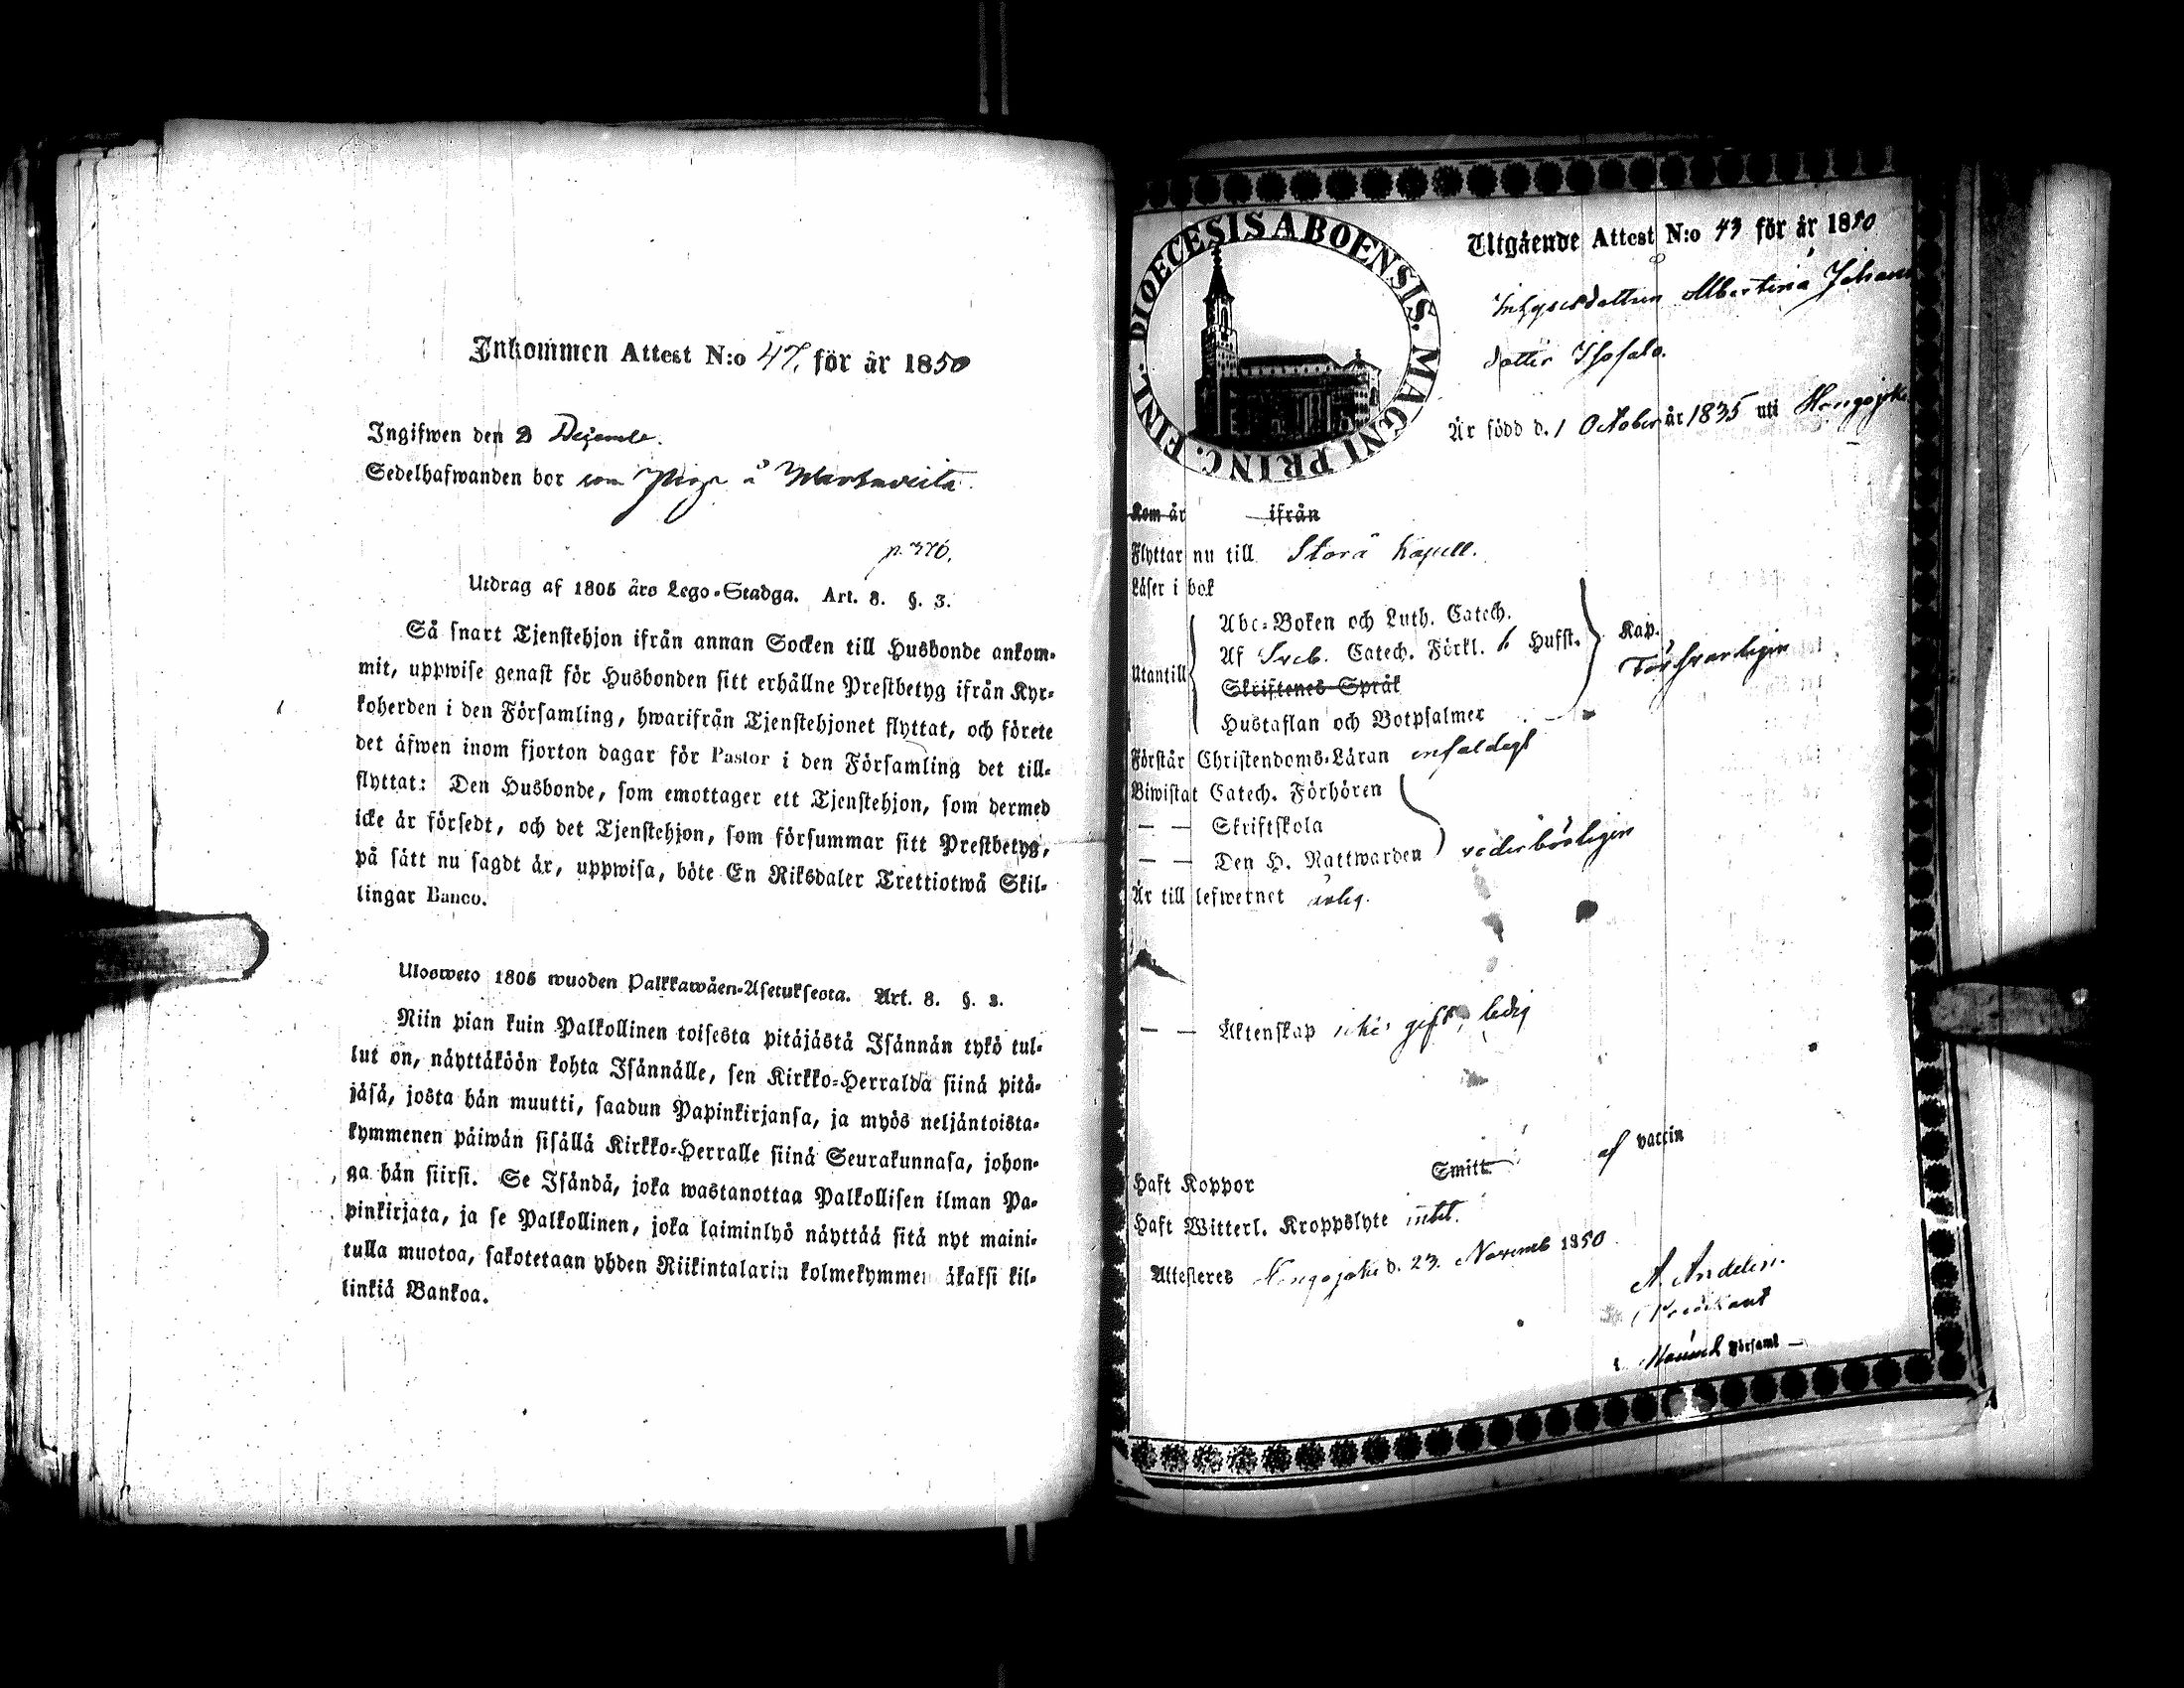 Inkommen Attest N:o 47. för år 1850
Ingifwen den 2 Decembr.
Sedelhafwanden bor som Piga å
p. 376.
Utdrag af 1805 års Lego-Stadga. Art. 8. §. 3.
Så snart Tjenstehjon ifrån annan Socken till Husbonde ankom-
mit, uppwise genast för Husbonden sitt erhållne Prestbetyg ifrån Kyr-
koherden i den Församling, hwarifrån Tjenstehjonet flyttat, och förete
det äfwen inom fjorton dagar för Pastor i den Församling det till-
flyttat: Den Husbonde, som emottager ett Tjenstehjon, som dermed
icke är försedt, och det Tjenstehjon, som försummar sitt Prestbetyg,
på sätt nu sagdt är, uppwisa, böte En Riksdaler Trettiotwå Skil-
lingar Banco.
Ulosweto 1805 wuoden Palkkawäen-Asetuksesta. Art. 8. §. 3.
Niin pian kuin Palkollinen toisesta pitäjästä Isännän tykö tul-
lut on, näyttäköön kohta Isännälle, sen Kirkko-Herralda siinä pitä-
jäsä, josta hän muutti, saadun Papinkirjansa, ja myös neljäntoista-
kymmenen päiwän sisällä Kirkko-Herralle siinä Seurakunnasa, johon-
ga hän siirsi. Se Isändä, joka wastanottaa Palkollisen ilman Pa-
pinkirjata, ja se Palkollinen, joka laiminlyö näyttää sitä nyt maini-
tulla muotoa, sakotetaan yhden Riikintalarin kolmekymmen äkaksi kil-
linkiä Bankoa.
DIOECESIS ABOENSIS. MAGNI PRINC. FINL.
Utgående Attest N:o 43 för år 1850
Inhysesdottren Albertina Johans
dotter Isosalo.
Är född d. 1 October år 1835 uti Hongojoki
Kom år ifrån
Flyttar nu till Storå Kapell.
Läser i bok
Abc-Boken och Luth. Catech.
Utantill Af Sveb. Catech. Förkl. 6 Hufst. Kap.
försvarligen
Skriftenes Språk
Hustaflan och Botpsalmer
Förstår Christendoms-Läran enfaldigt
Biwistat Catech. Förhören
— — Skriftskola
— — Den H. Nattwarden vederbörligen
Är till lefwernet ärlig.
— — Äktenskap icke gift, ledig
Haft Koppor Smitt. af vaccin
Haft Witterl. Kroppslyte intet.
Attesteres Hongojoki d. 23. Novemb 1850
A. Andelin.
Predikant
Församl —